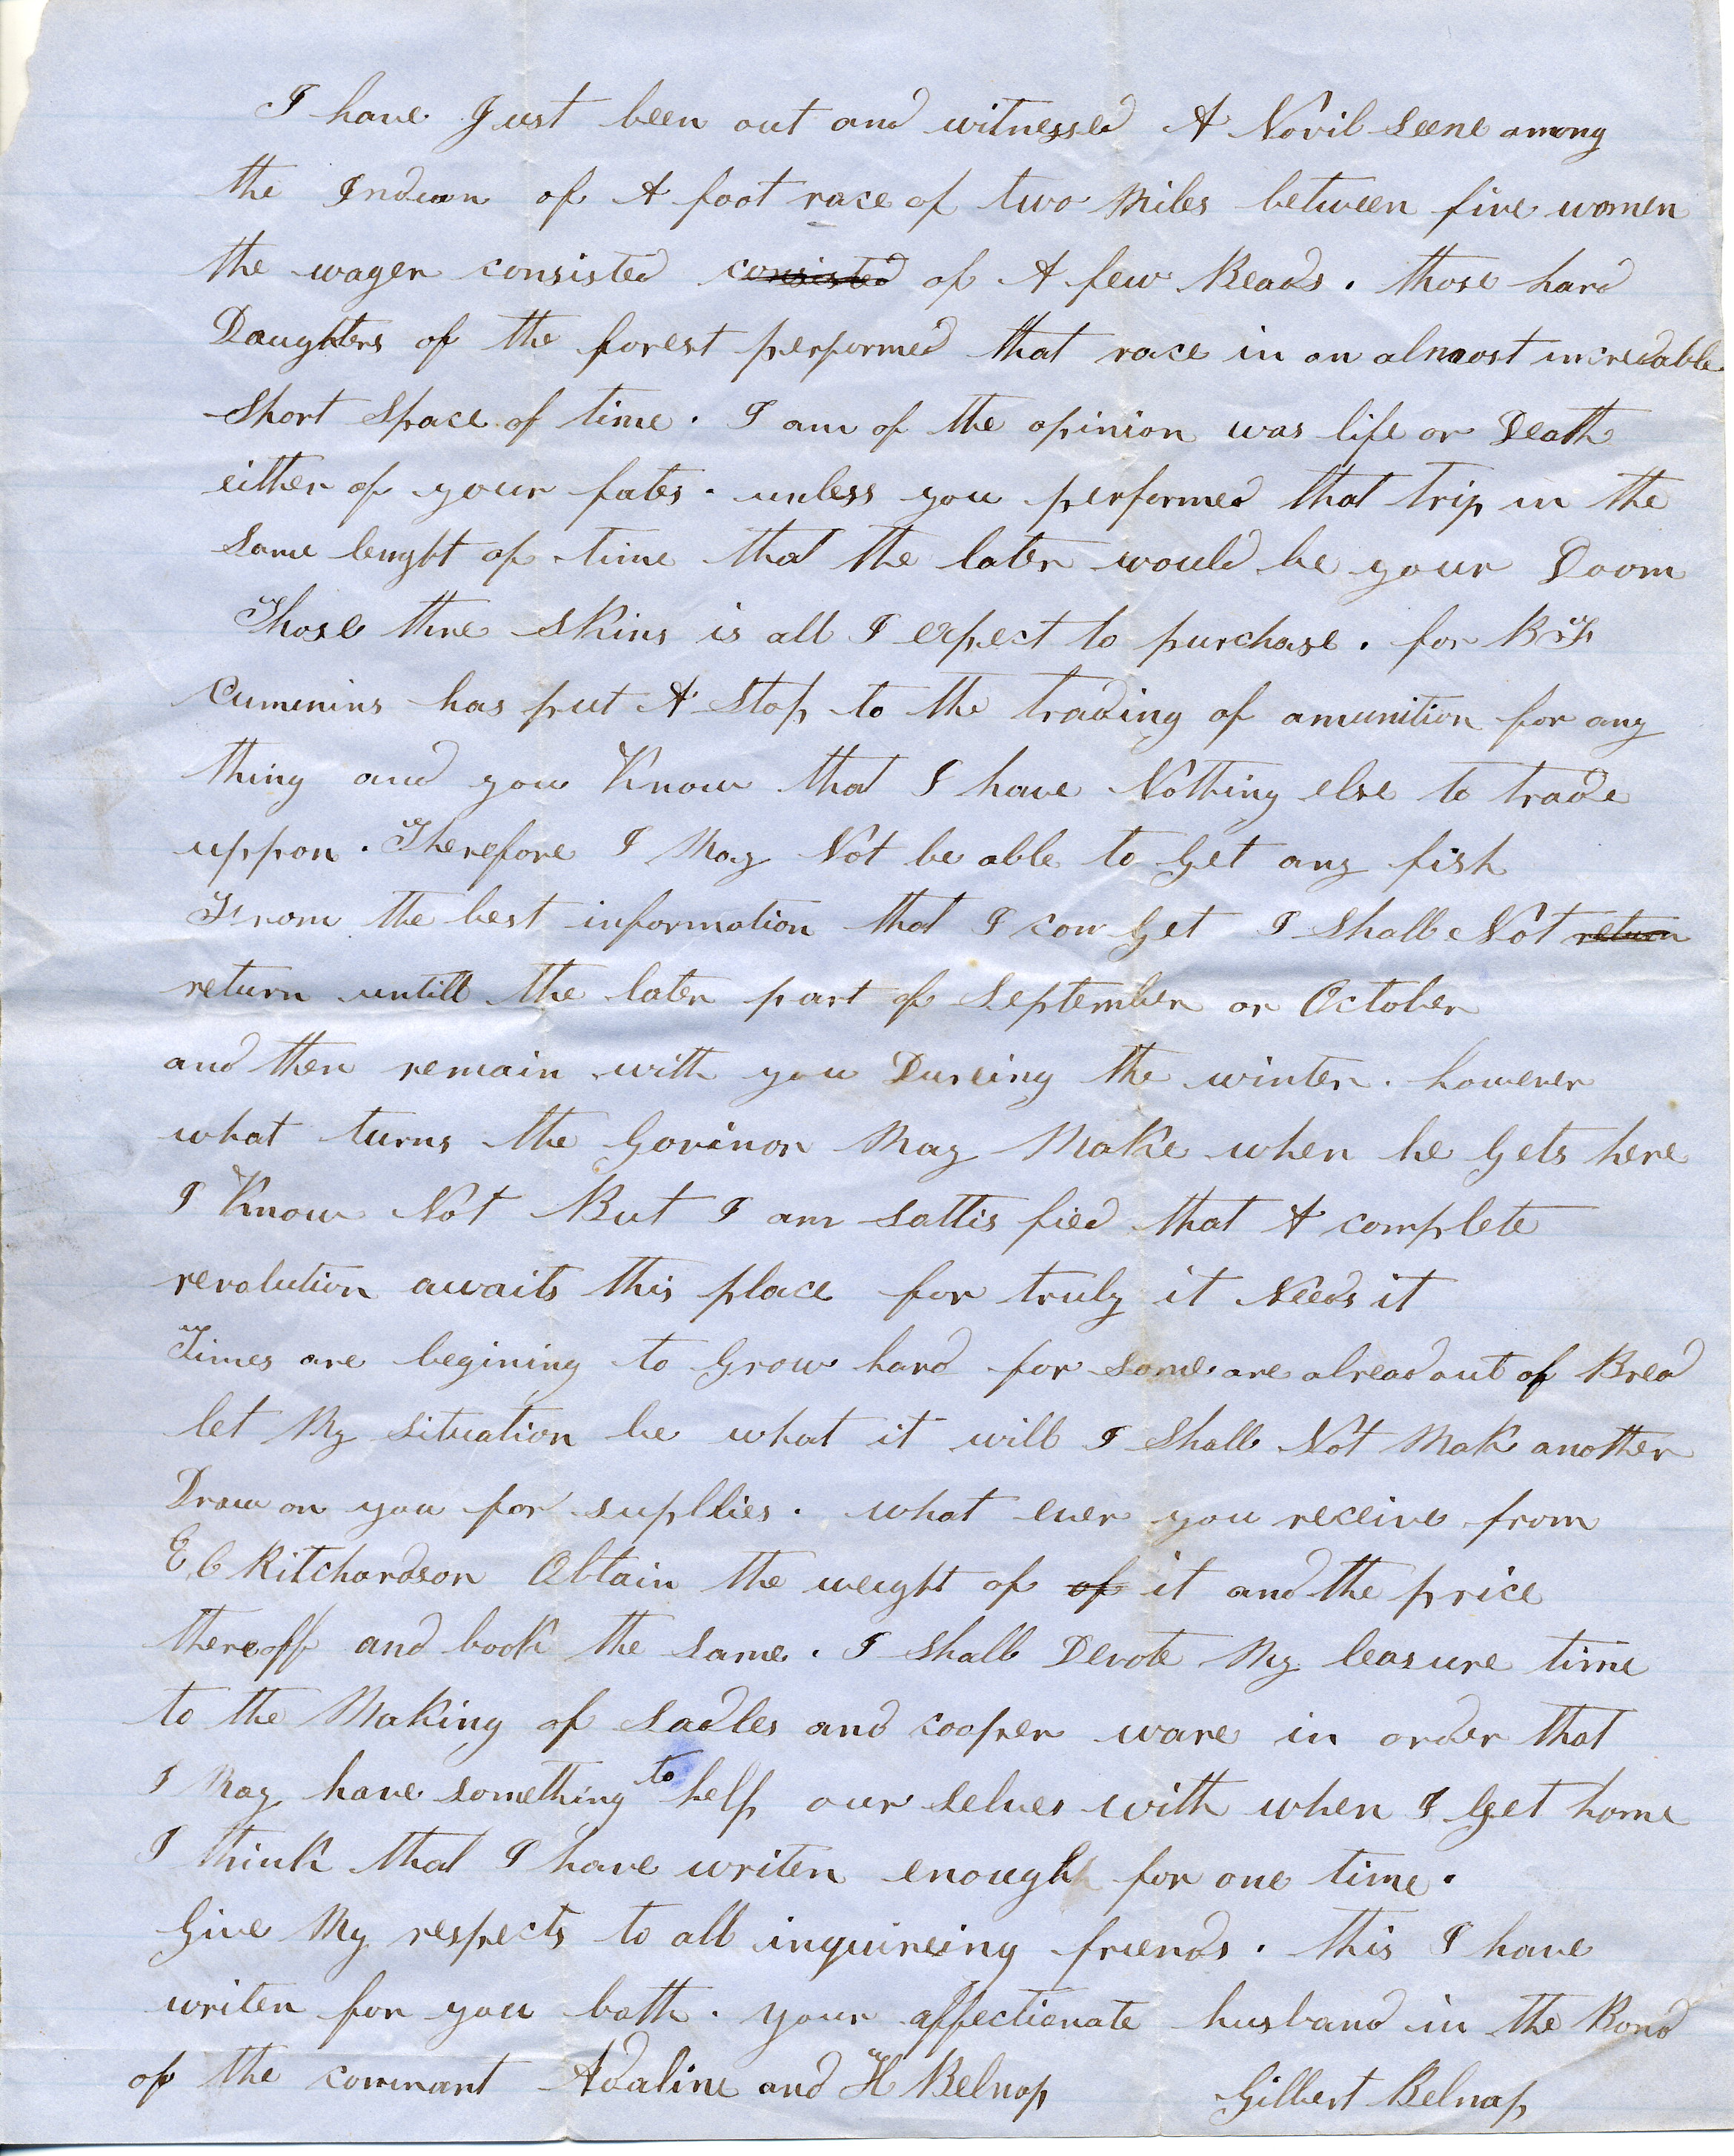 I have Just been out and witnessed A Novil Seene among
the Indian of A foot race of two Miles between five women
the wager consisted consisted of A few Beads. those hard
Daughters of the forest performed that race in an almost incredable
Short Space of time. I am of the opinion was life or Death
either of your fates. unless you performed that trip in the
Same lenght of time that the later would be your Doom
Those three Skins is all I expect to purchase. for B F
Cummins has put A Stop to the trading of amunition for any
thing and you Know that I have Nothing else to trade
uppon. Therefore I May Not be able to Get any fish
From the best information that I can Get I Shall Not return
return untill the later part of September or October
and then remain with you Dureing the winter. however
what turns the Govinor May Make when he Gets here
I Know Not But I am Sattis fied that A complete
revolution awaits this place for truly it Needs it
Times are begining to Grow hard for Some are alread out of Bread
let My Situation be what it will I Shall Not Mak another
Draw on you for supllies. what ever you receive from
E C Ritchardson Obtain the weight of of it and the price
thereoff and book the Same. I Shall Devote My leasure time
to the Making of Sadles and cooper ware in order that
I May have something to help our Selves with when I Get home
I think that I have writen enough for one time.
Give My respects to all inquireing friends. this I have
writen for you both. your affectionate husband in the Bond
of the covenant Adaline and H Belnap Gilbert Belnap